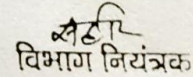 विभाग नियंत्रक